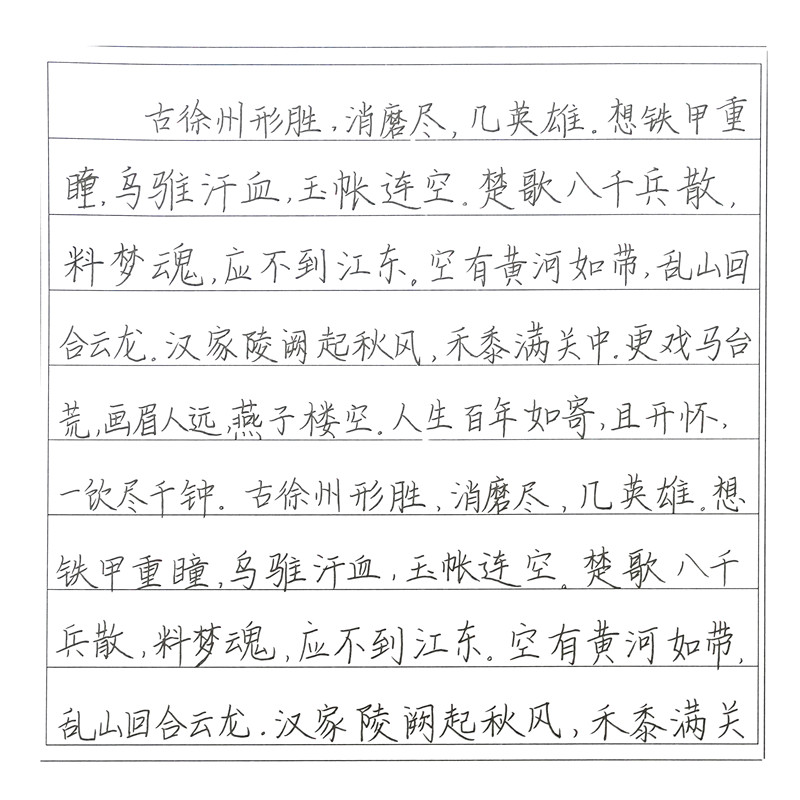 古徐州形胜，消磨尽，几英雄。想铁甲重
瞳，乌骓汗血，玉帐连空。楚歌八千兵散，
料梦魂，应不到江东。空有黄河如带，乱山回
合云龙。汉家陵阙起秋风，禾黍满关中。更戏马台
荒，画眉人远，燕子楼空。人生百年如寄，且开怀，
一饮尽千钟。古徐州形胜，消磨尽，几英雄。想
铁甲重瞳，乌骓汗血，玉帐连空。楚歌八千
兵散，料梦魂，应不到江东。空有黄河如带，
乱山回合云龙。汉家陵阙起秋风，禾黍满关